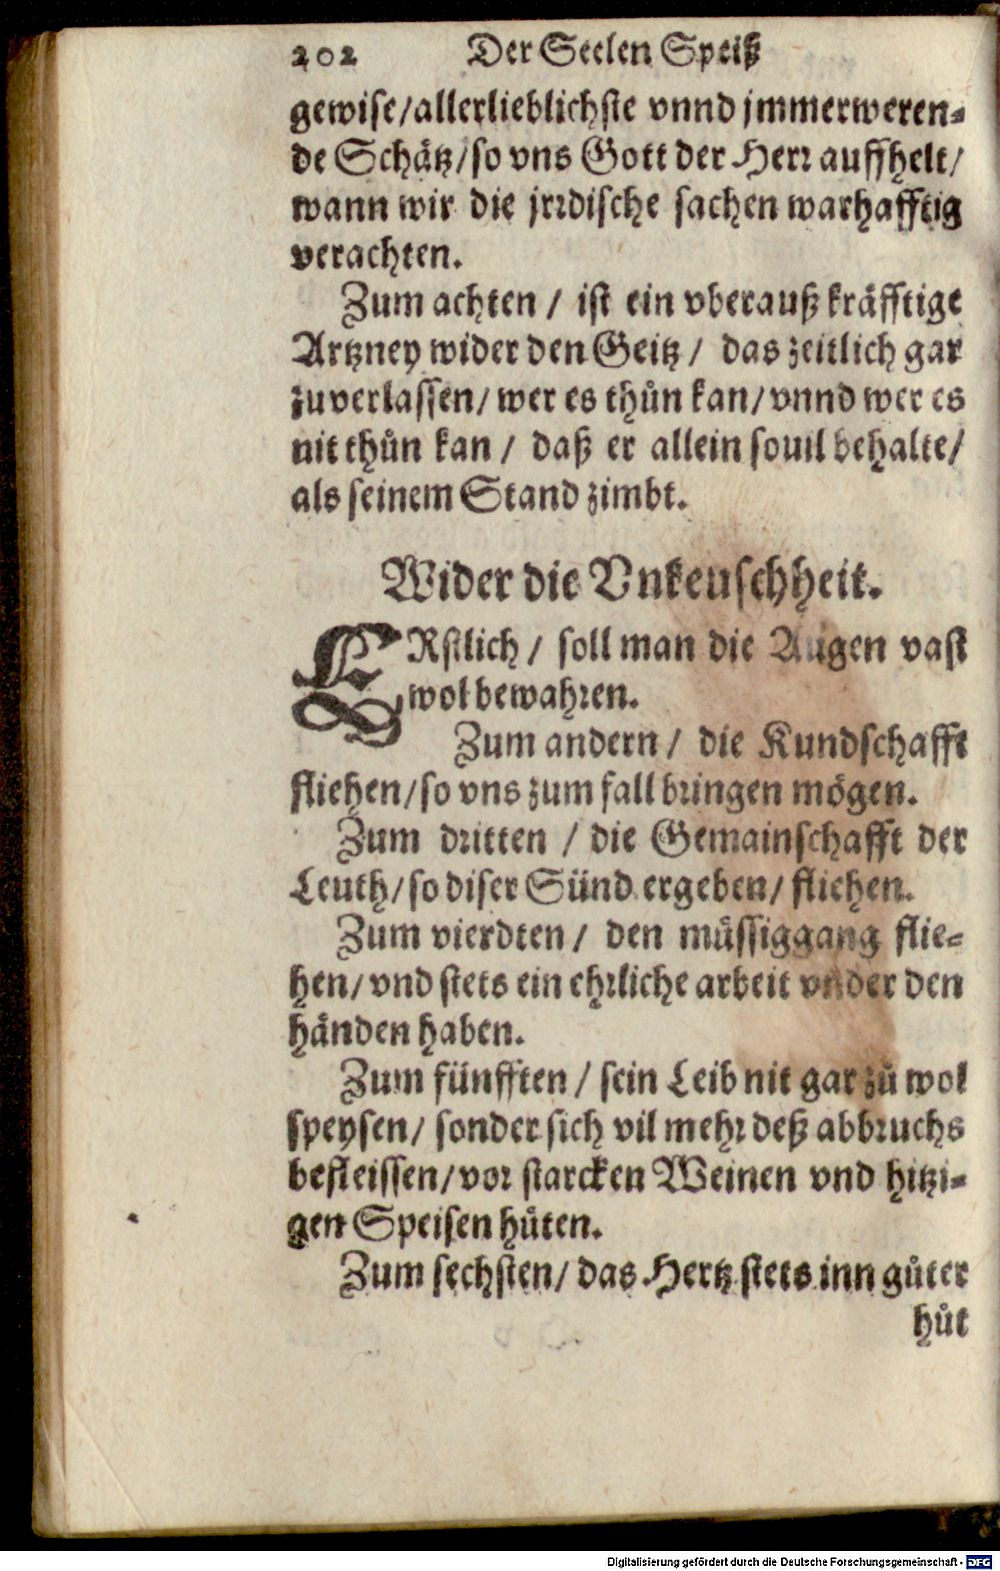 202 Der Seelen Speiß
gewise/allerlieblichste vnnd jmmerweren-
de Schätz/so vns Gott der Herr auffhelt/
wann wir die jrrdische sachen warhafftig
verachten.
Zum achten / ist ein vberauß kräfftige
Artzney wider den Geitz / das zeitlich gar
zuverlassen/ wer es thůn kan/ vnnd wer es
nit thůn kan / daß er allein souil behalte/
als seinem Stand zimbt.
Wider die Vnkeuschheit.
ERstlich / soll man die Augen vast
wol bewahren.
Zum andern / die Kundschafft
fliehen/so vns zum fall bringen mögen.
Zum dritten / die Gemainschafft der
Leuth/so diser Sünd ergeben/ fliehen.
Zum vierdten / den müssiggang flie-
hen/ vnd stets ein ehrliche arbeit vnder den
händen haben.
Zum fünfften / sein Leib nit gar zů wol
speysen/ sonder sich vil mehr deß abbruchs
befleissen/ vor starcken Weinen vnd hitzi-
gen Speisen hüten.
Zum sechsten/ das Hertz stets inn gůter
hůt
Digitalisierung gefördert durch die Deutsche Forschungsgemeinschaft - DFG